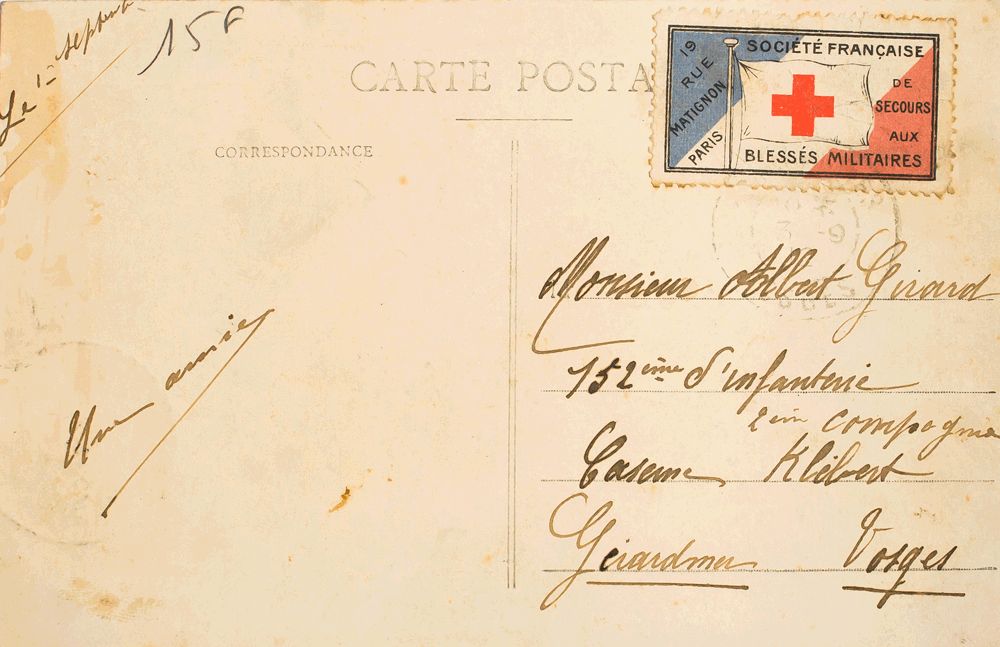 Le 1er septemb
15F
CARTE POSTA
CORRESPONDANCE
19
RUE
MATIGNON
PARIS
SOCIÉTÉ FRANÇAISE
DE
SECOURS
AUX
BLESSÉS MILITAIRES
Monsieur Albert Girard
152ème d'infanterie
2èm compagnie
Caserne Klébert
Gérardmer Vosges
Une amie